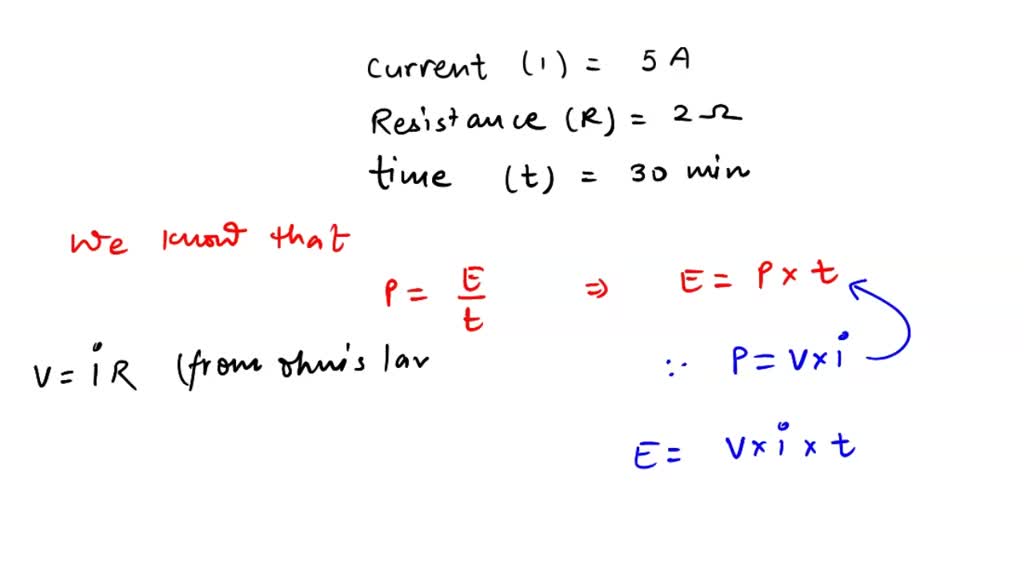 current (i) = 5 A
Resistance (R) = 2 Ω
time (t) = 30 min
We know that
P = E/t ⇒ E = P × t
V = iR (from ohm's law
∵ P = V × i
E = V × i × t